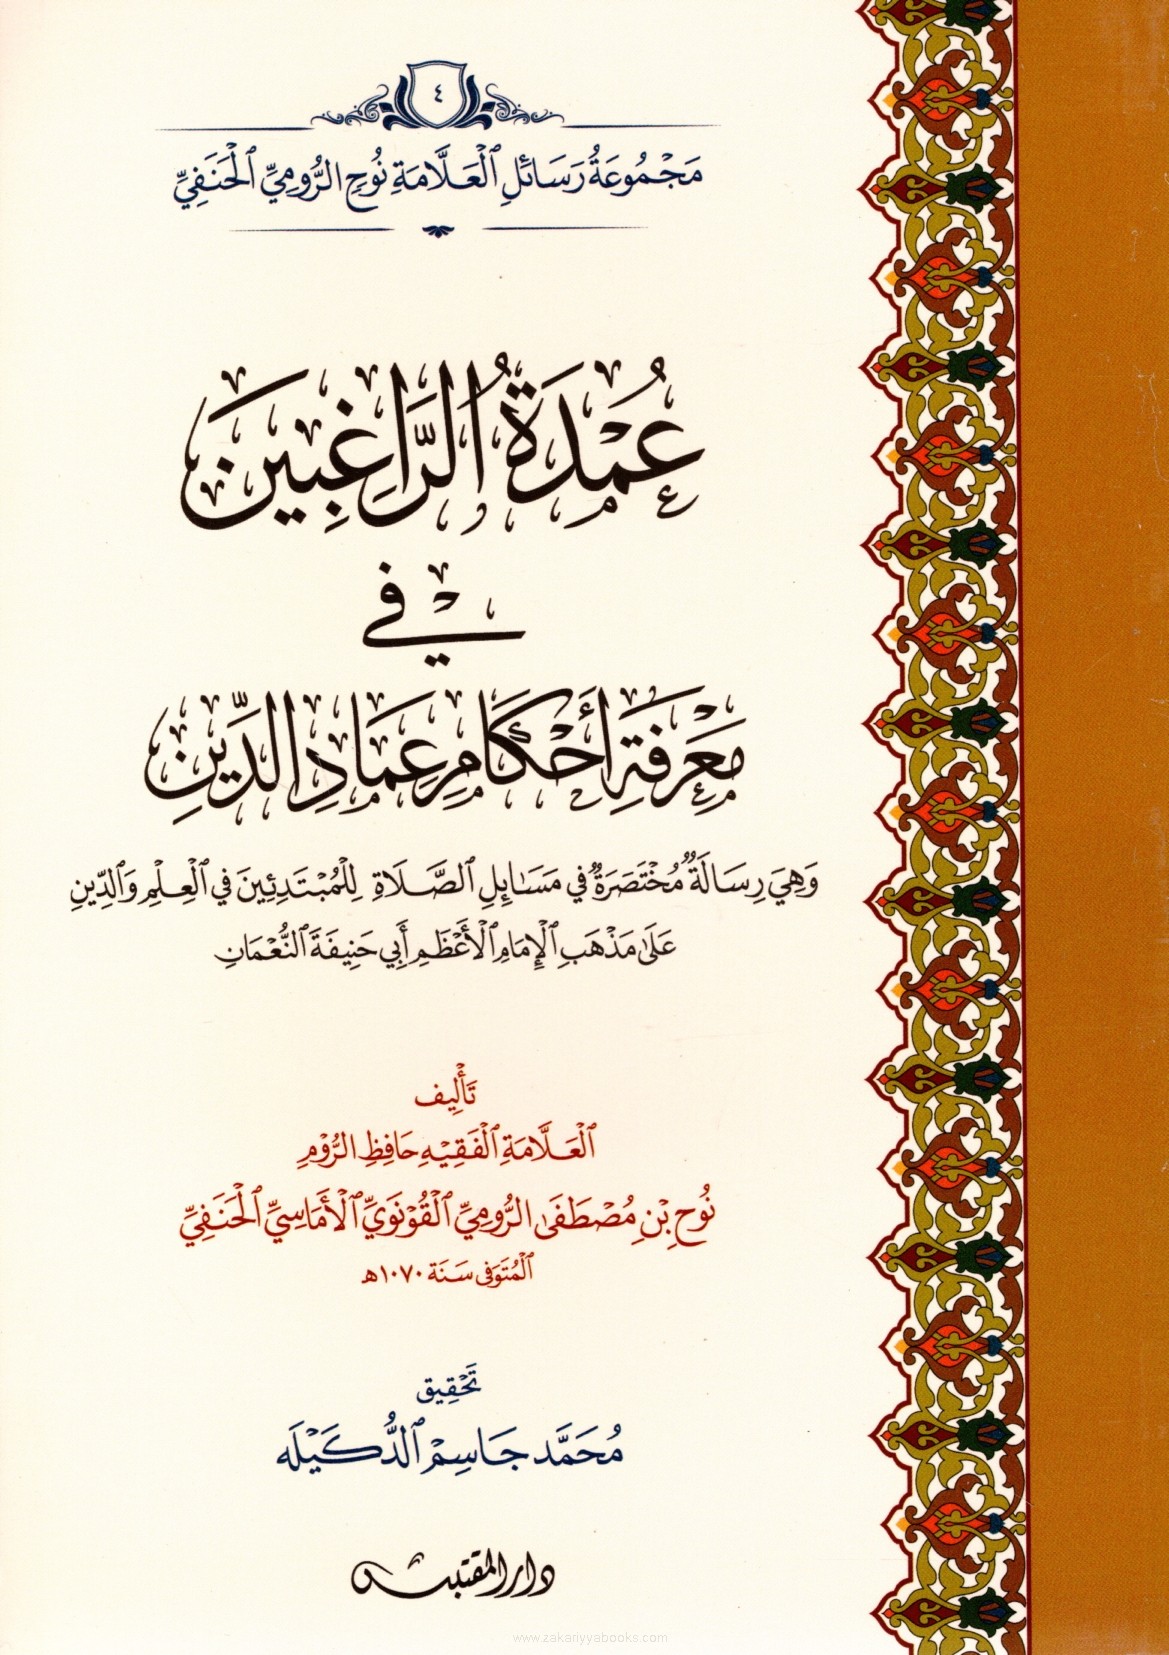 ٤
مَجْمُوعَةُ رَسَائِلِ ٱلْعَلَّامَةِ نُوحِ الرُّومِيِّ ٱلْحَنَفِيِّ
عُمْدَةُ الرَّاغِبِينَ
فِي
مَعْرِفَةِ أَحْكَامِ عِمَادِ الدِّينِ
وَهِيَ رِسَالَةٌ مُخْتَصَرَةٌ فِي مَسَائِلِ ٱلصَّلَاةِ لِلْمُبْتَدِئِينَ فِي ٱلْعِلْمِ وَٱلدِّينِ
عَلَىٰ مَذْهَبِ ٱلْإِمَامِ ٱلْأَعْظَمِ أَبِي حَنِيفَةَ ٱلنُّعْمَانِ
تَأْلِيف
ٱلْعَلَّامَةِ ٱلْفَقِيهِ حَافِظِ الرُّوْمِ
نُوحِ بْنِ مُصْطَفَىٰ الرُّومِيِّ ٱلْقُوْنَوِيِّ ٱلْأَمَاسِيِّ ٱلْحَنَفِيِّ
ٱلْمُتَوَفَّى سَنَة ١٠٧٠ھ
تَحْقِيق
مُحَمَّد جَاسِمْ ٱلدُّكَيْلَه
دار المقتبس
www.zakariyyabooks.com